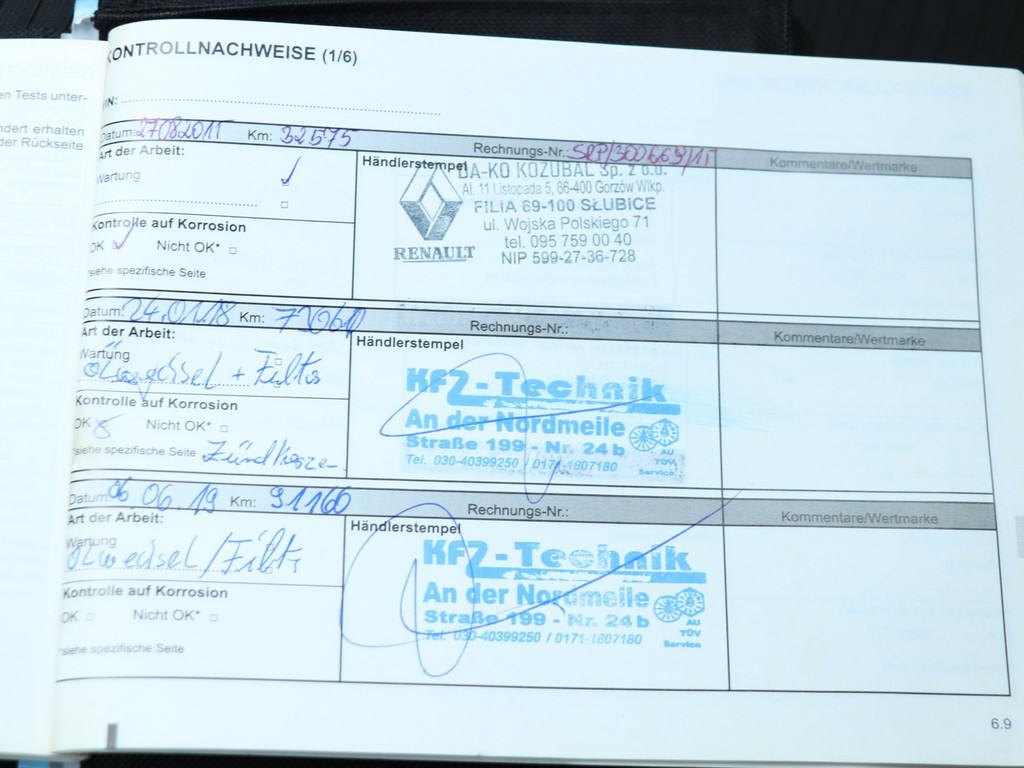 en Tests unter-
ndert erhalten
der Rückseite
KONTROLLNACHWEISE (1/6)
VIN:
Datum: 27082015 Km: 32575 Rechnungs-Nr. Kommentare/Wertmarke
Art der Arbeit:
Wartung
Kontrolle auf Korrosion
OK Nicht OK*
*siehe spezifische Seite
Händlerstempel
DA-KO KOZUBAL Sp. z o.o.
Al. 11 Listopada 5, 66-400 Gorzów Wlkp.
FILIA 69-100 SŁUBICE
ul. Wojska Polskiego 71
tel. 095 759 00 40
NIP 599-27-36-728
RENAULT
Datum: 24.01.18 Km: Rechnungs-Nr.: Kommentare/Wertmarke
Art der Arbeit:
Wartung
Ölwechsel + Filter
Kontrolle auf Korrosion
OK Nicht OK*
*siehe spezifische Seite Zündkerzen
Händlerstempel
KfZ-Technik
An der Nordmeile
Straße 199 - Nr. 24b
Tel. 030-40399250 / 0171-1807180
AU
TÜV
Service
Datum: 06.06.19 Km: 91160 Rechnungs-Nr.: Kommentare/Wertmarke
Art der Arbeit:
Wartung
Ölwechsel/Filter
Kontrolle auf Korrosion
OK Nicht OK*
*siehe spezifische Seite
Händlerstempel
KfZ-Technik
An der Nordmeile
Straße 199 - Nr. 24b
Tel. 030-40399250 / 0171-1807180
AU
TÜV
Service
6.9